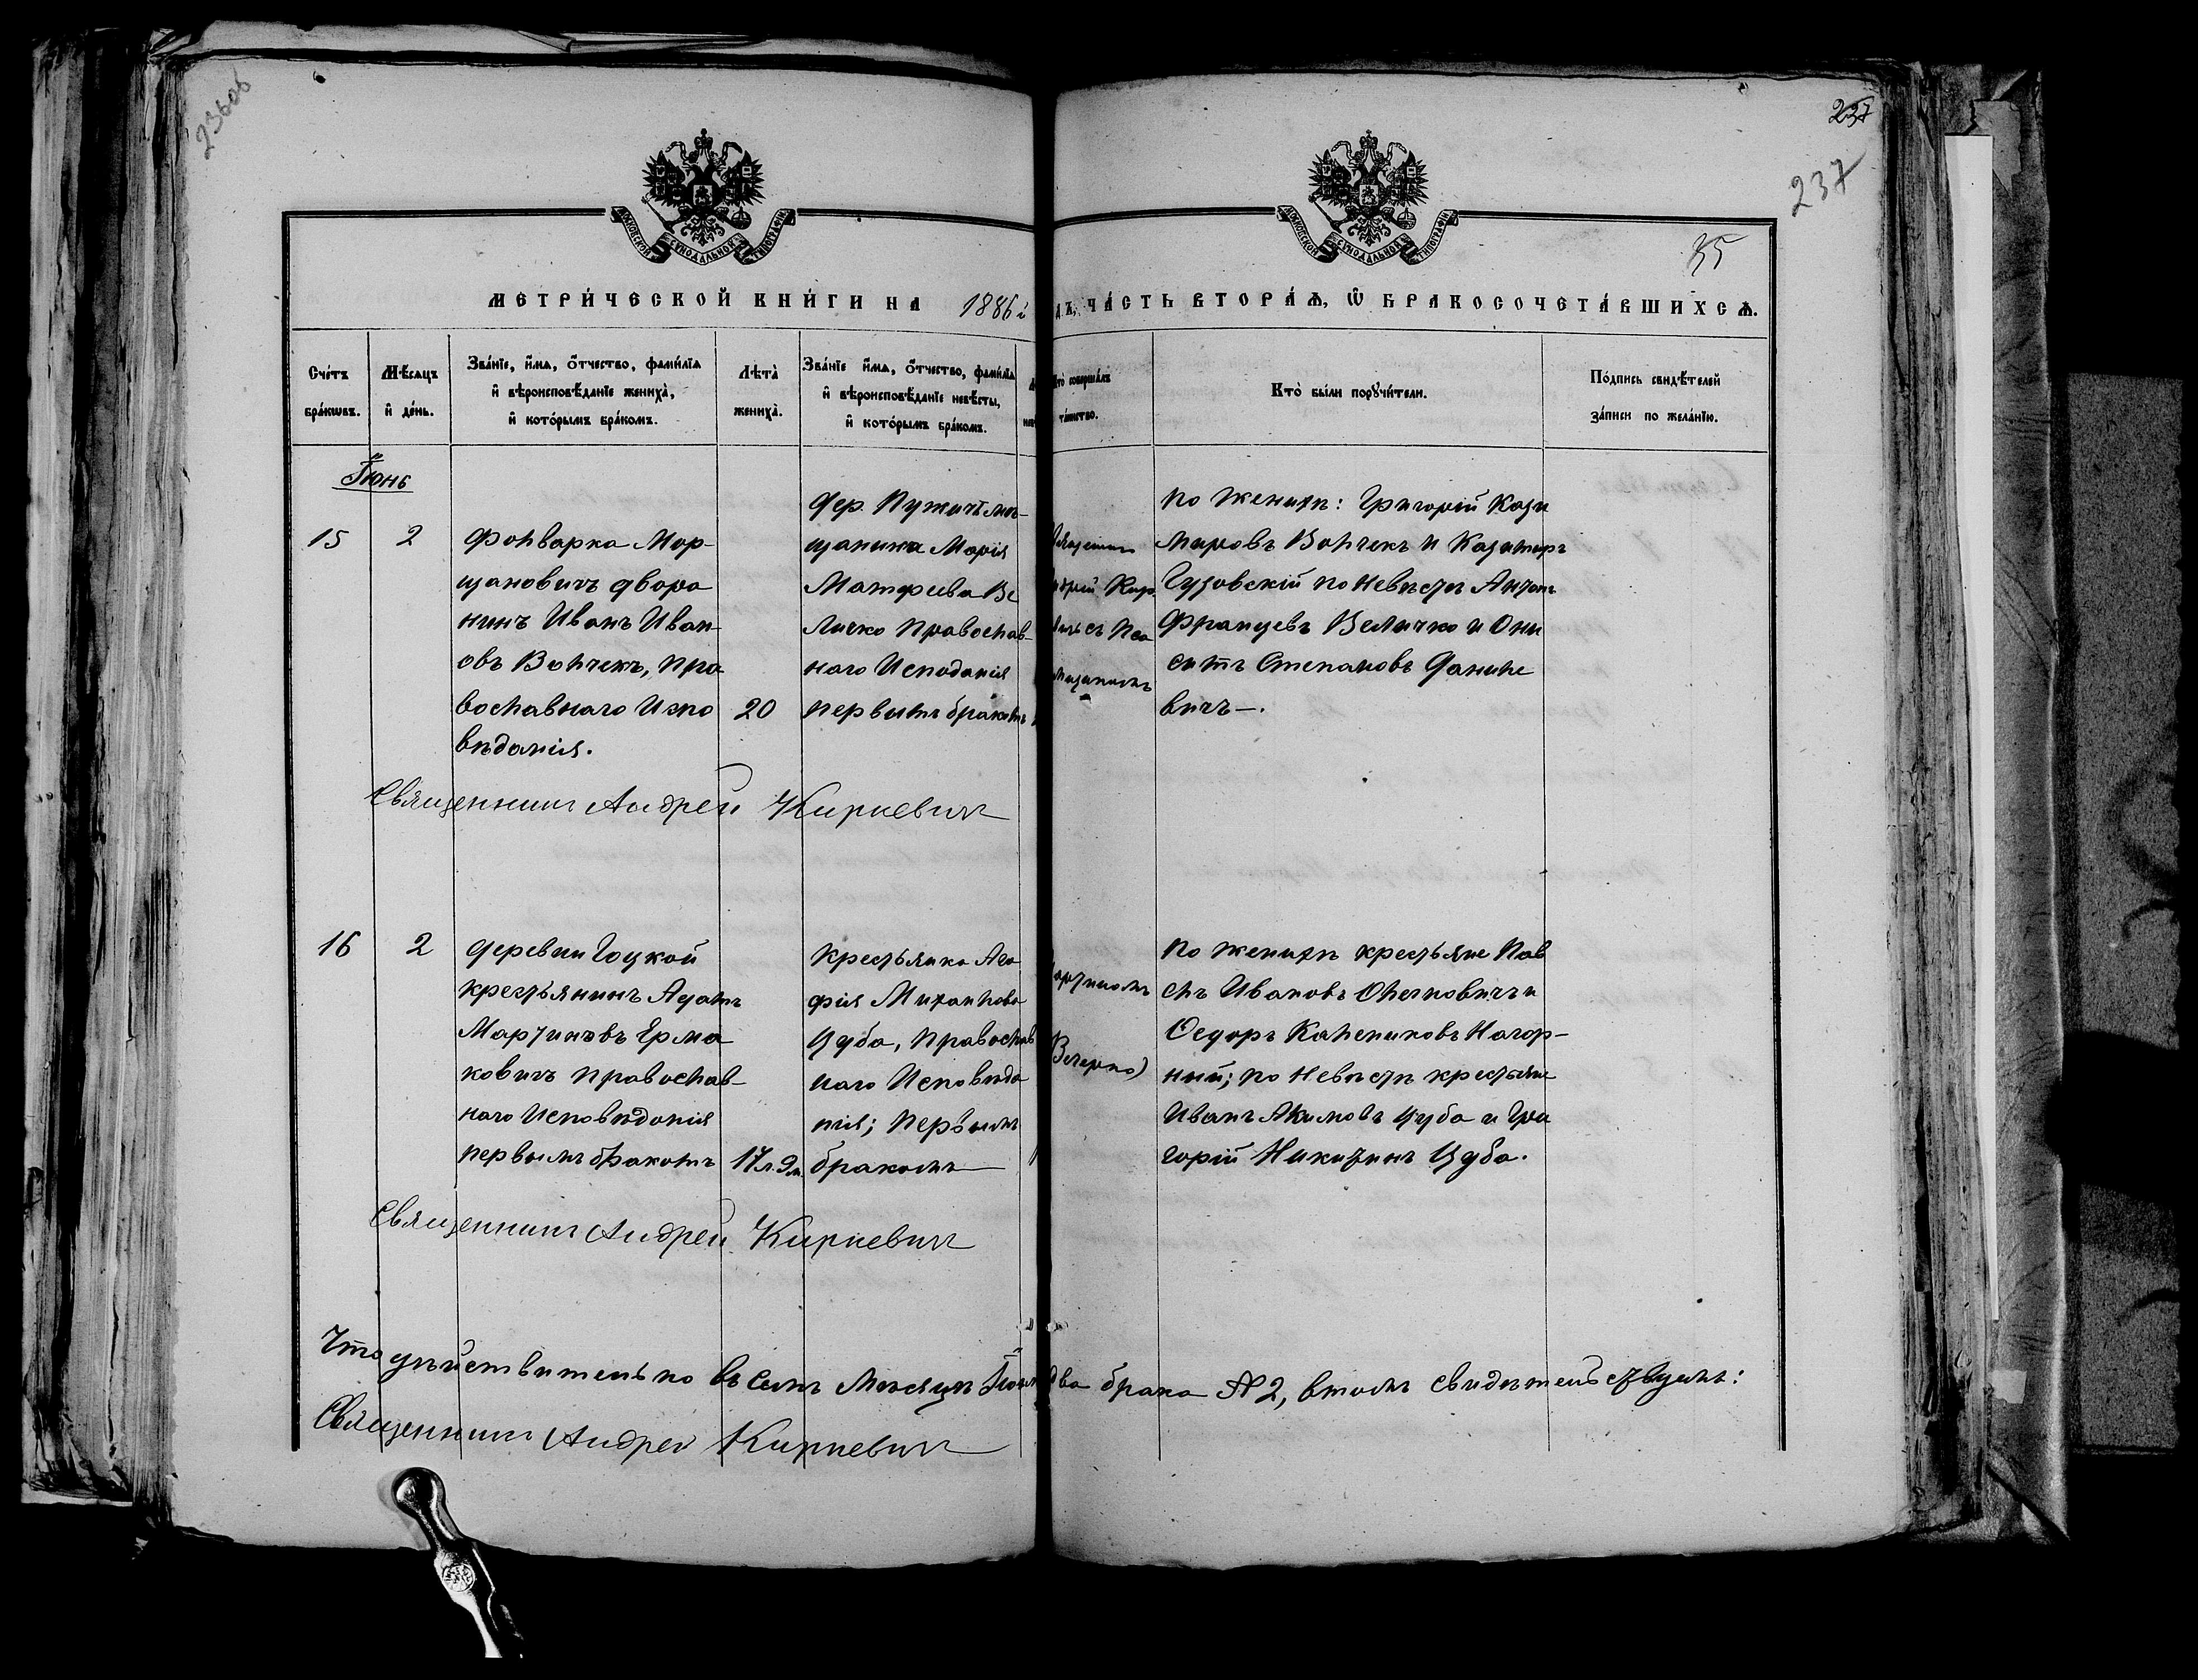 236об
237
237
35
МОСКОВСКОЙ СѴНОДАЛЬНОЙ ТИПОГРАФІИ
МОСКОВСКОЙ СѴНОДАЛЬНОЙ ТИПОГРАФІИ
МЕТРИ́ЧЕСКОЙ КНИ́ГИ НА 1886 г
ДЪ, ЧА́СТЬ ВТОРА́Ѧ, Ѡ҆ БРАКОСОЧЕТА́ВШИХСѦ.
Сче́тъ бра́кѡвъ.
Мѣ́сѧцъ и҆ де́нь.
Зва́нїе, и҆́мѧ, ѻ҆́тчество, фами́лїа и҆ вѣроисповѣ́данїе жениха̀, и҆ кото́рымъ бра́комъ.
Лѣта̀ жениха̀.
Зва́нїе и҆́мѧ, ѻ҆́тчество, фами́лїа и҆ вѣроисповѣ́данїе невѣ́сты, и҆ кото́рымъ бра́комъ.
Кто̀ соверша́лъ та́инство.
Кто̀ бы́ли порꙋчи́тели.
По́дпись свидѣ́телей за́писи по жела́нїю.
Іюнь
15
2
Фольварка Мор-
щановичъ дворя
нинъ Иванъ Иван-
овъ Волчекъ, пра
вославнаго Испо
вѣданія.
20
дер. Пужичъ мѣ-
щанина Марія
Матфеева Ве
личко Православ-
наго Исподанія
первымъ бракомъ
по женихѣ: Григорій Кази
мировъ Волчекъ и Казимиръ
Гузовскій по невѣстѣ Антонъ
Францевъ Величко и Они
симъ Степановъ Даниле
вичъ—.
Священникъ Андрей Киркевичъ
16
2
деревни Гоцкой
крестьянинъ Адамъ
Мартиновъ Ерма
ковичъ православ-
наго Исповѣданія
первымъ бракомъ
17 л. 9 м.
крестьянка Ага
фія Михаилова
Цуба, Православ
наго Исповѣда
нія; первымъ
бракомъ—
Вечерко)
по женихѣ крестьяне Пав
елъ Ивановъ Олехновичъ и
Ѳедоръ Калениковъ Нагор-
ный; по невѣстѣ крестьяне
Иванъ Акимовъ Цуба и Гри
горій Никитинъ Цуба.
Священникъ Андрей Киркевичъ
Что дѣйствительно въ семъ мѣсяцѣ Іюнѣ два брака № 2, втомъ свидѣтельствуемъ:
Священникъ Андрей Киркевичъ